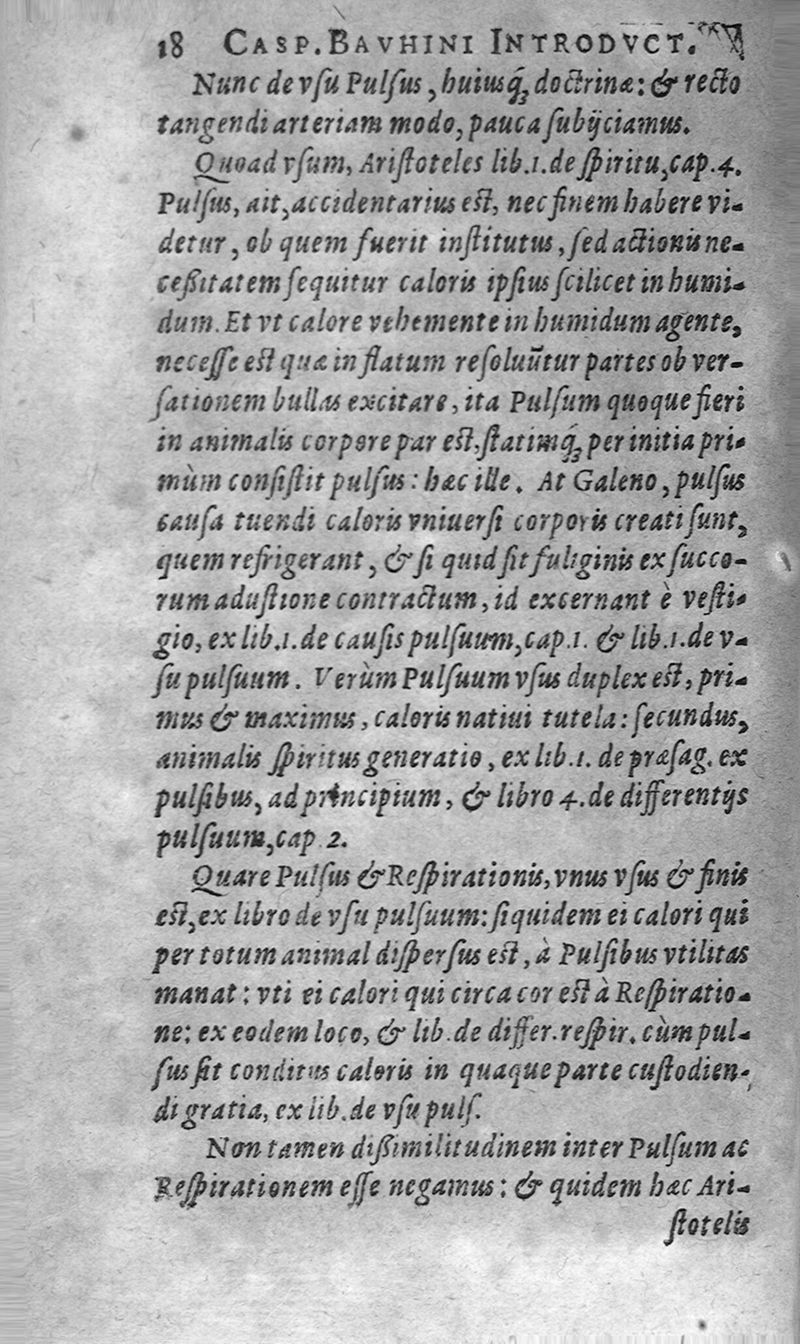 18 CASP. BAVHINI INTRODVCT.
Nunc de vſu Pulſus, huiusq́; doctrinæ: & recto
tangendi arteriam modo, pauca ſubijciamus.
Quoad vſum, Ariſtoteles lib.1. de ſpiritu, cap.4.
Pulſus, ait, accidentarius eſt, nec finem habere vi-
detur, ob quem fuerit inſtitutus, ſed actionis ne-
ceßitatem ſequitur caloris ipſius ſcilicet in humi-
dum. Et vt calore vehemente in humidum agente,
neceſſe eſt quæ in flatum reſoluūtur partes ob ver-
ſationem bullas excitare, ita Pulſum quoque fieri
in animalis corpore par eſt. ſtatimq́; per initia pri-
mùm conſiſtit pulſus: hæc ille. At Galeno, pulſus
cauſa tuendi caloris vniuerſi corporis creati ſunt,
quem refrigerant, & ſi quid ſit fuliginis ex ſucco-
rum aduſtione contractum, id excernant è veſti-
gio, ex lib.1. de cauſis pulſuum, cap.1. & lib.1. de v-
ſu pulſuum. Verùm Pulſuum vſus duplex eſt, pri-
mus & maximus, caloris natiui tutela: ſecundus,
animalis ſpiritus generatio, ex lib.1. de præſag. ex
pulſibus, ad principium, & libro 4. de differentijs
pulſuum, cap 2.
Quare Pulſus & Reſpirationis, vnus vſus & finis
eſt, ex libro de vſu pulſuum: ſiquidem ei calori qui
per totum animal diſperſus eſt, à Pulſibus vtilitas
manat: vti ei calori qui circa cor eſt à Reſpiratio-
ne: ex eodem loco, & lib. de differ. reſpir. cùm pul-
ſus ſit conditus caloris in quaque parte cuſtodien-
di gratia, ex lib. de vſu pulſ.
Non tamen dißimilitudinem inter Pulſum ac
Reſpirationem eſſe negamus: & quidem hæc Ari-
ſtotelis